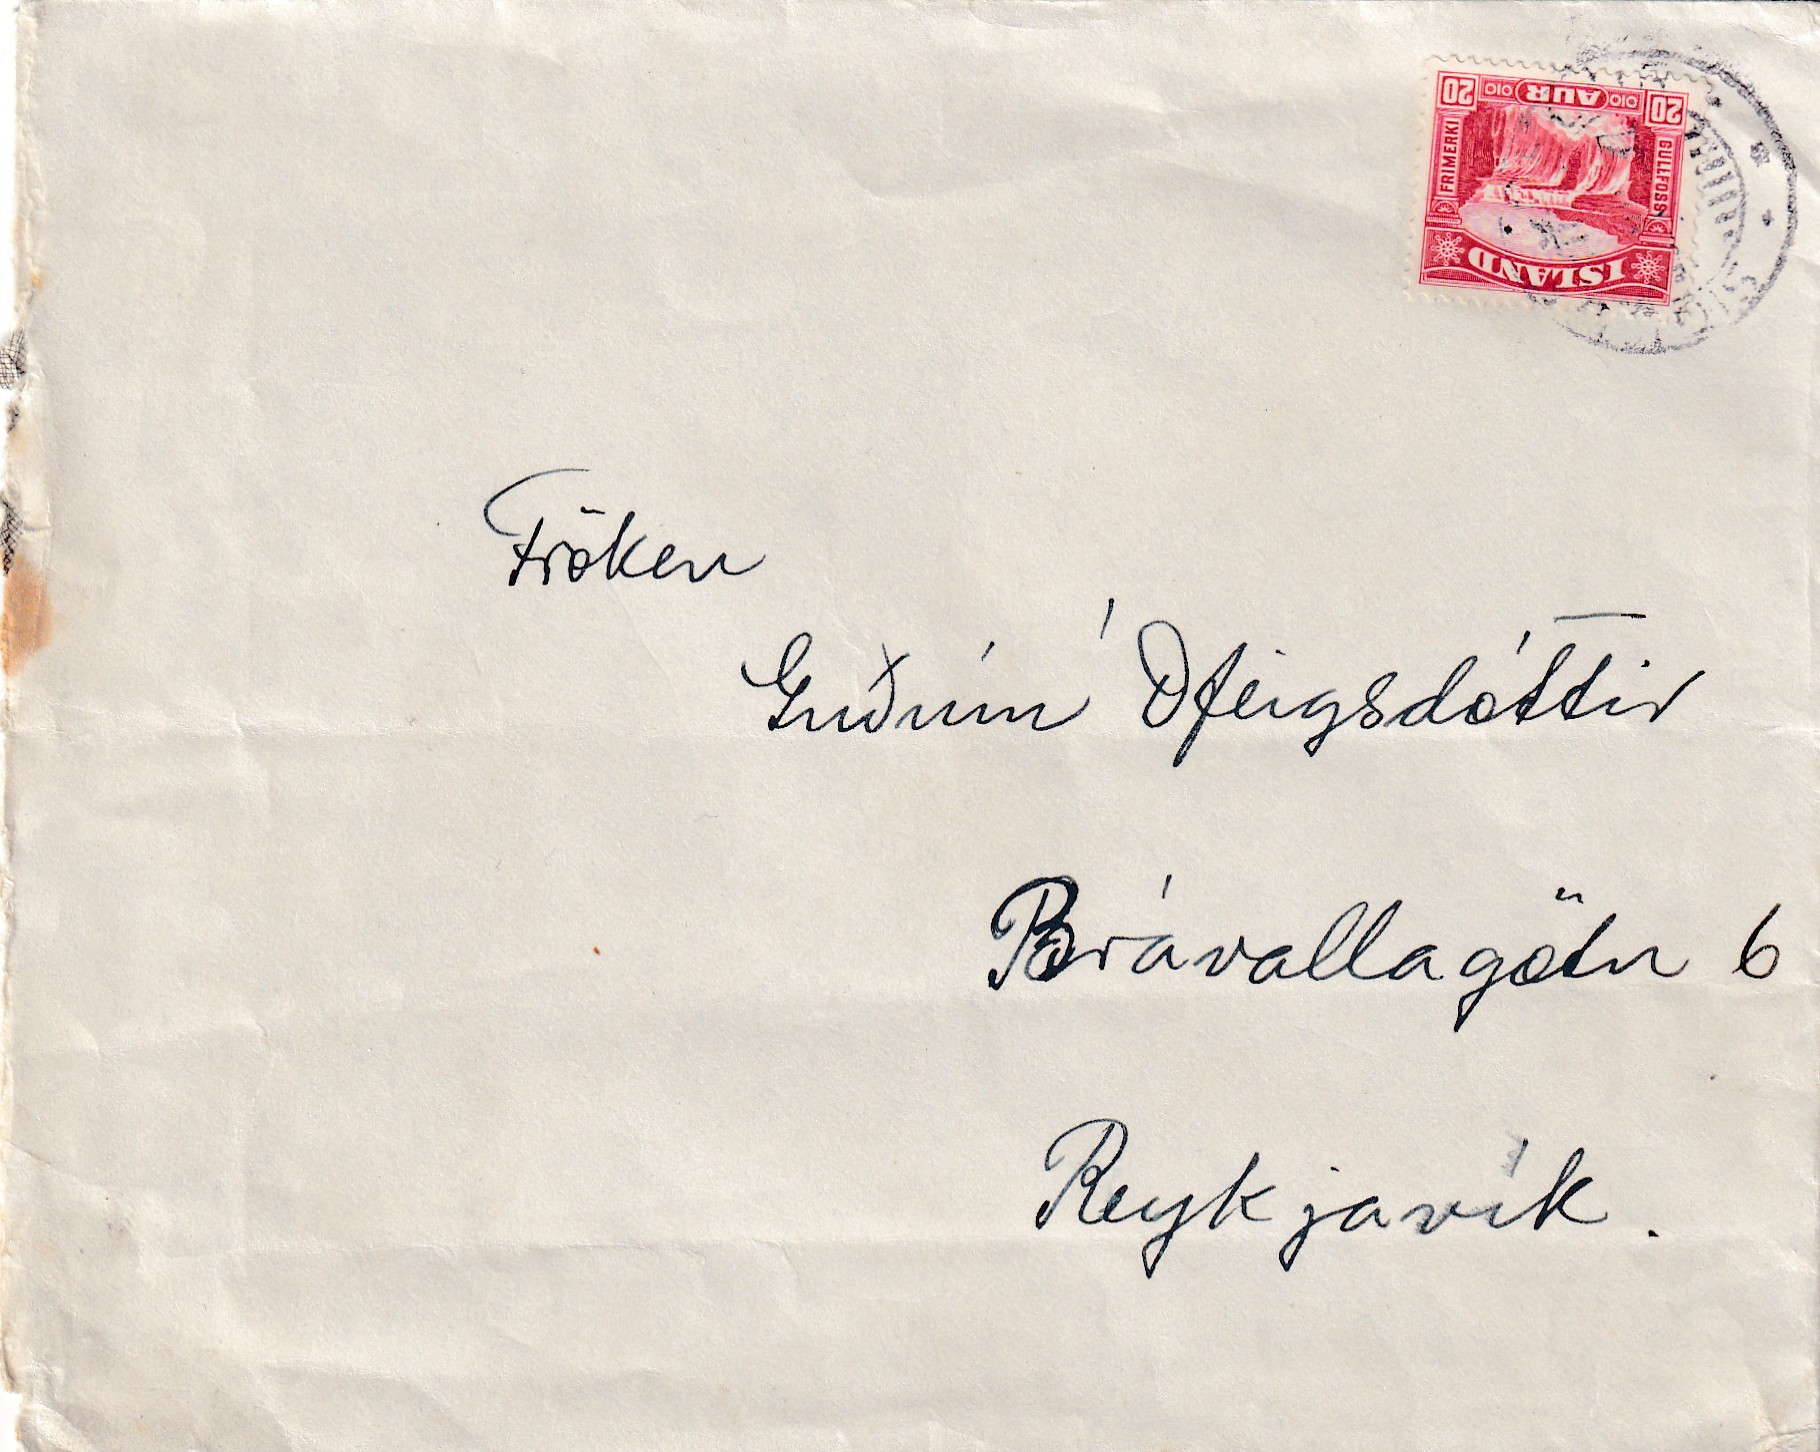 20 AUR 20
FRIMERKI
GULLFOSS
ISLAND
Fröken
Guðrún Ófeigsdóttir
Brávallagötu 6
Reykjavík.